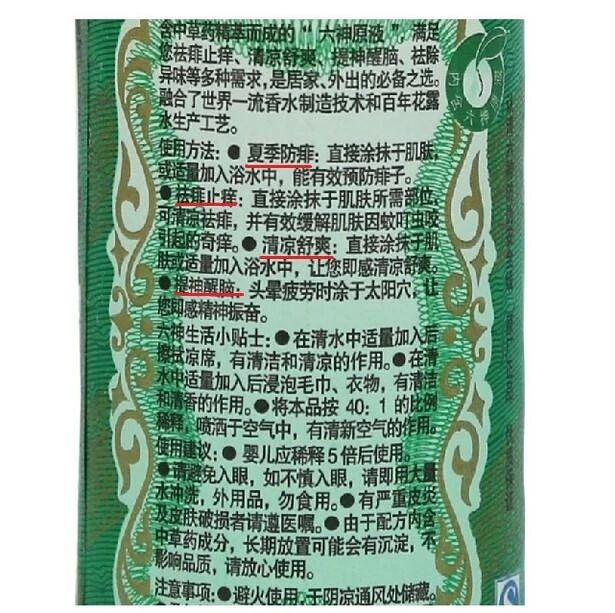 含中草药精萃而成的“六神原液”,满足
您祛痱止痒、清凉舒爽、提神醒脑、祛除
异味等多种需求,是居家、外出的必备之选。
融合了世界一流香水制造技术和百年花露
水生产工艺。
使用方法:●夏季防痱:直接涂抹于肌肤,
或适量加入浴水中,能有效预防痱子。
●祛痱止痒:直接涂抹于肌肤所需部位,
可清凉祛痱,并有效缓解肌肤因蚊叮虫咬
引起的奇痒。●清凉舒爽:直接涂抹于肌
肤或适量加入浴水中,让您即感清凉舒爽。
●提神醒脑:头晕疲劳时涂于太阳穴,让
您即感精神振奋。
六神生活小贴士:●在清水中适量加入后
擦拭凉席,有清洁和清凉的作用。●在清
水中适量加入后浸泡毛巾、衣物,有清洁
和清香的作用。●将本品按 40:1 的比例
稀释,喷洒于空气中,有清新空气的作用。
使用建议:●婴儿应稀释5倍后使用。
●请避免入眼,如不慎入眼,请即用大量
水冲洗,外用品,勿食用。●有严重皮炎
及皮肤破损者请遵医嘱。●由于配方内含
中草药成分,长期放置可能会有沉淀,不
影响品质,请放心使用。
注意事项:●避火使用,于阴凉通风处储藏。